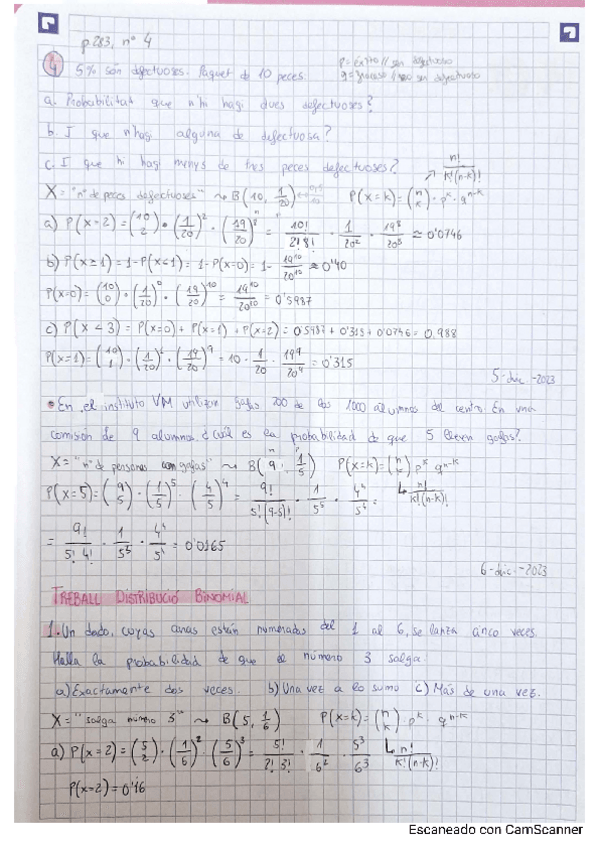 p 283, nº 4
4 5% són defectuoses. Paquet de 10 peces.
p = èxito // ser defectuoso
q = fracaso // no ser defectuoso
a. Probabilitat que n'hi hagi dues defectuoses?
b. I que n'hagi alguna de defectuosa?
c. I que hi hagi menys de tres peces defectuoses?
n! / K!(n-k)!
X = "nº de peces defectuoses" ↝ B(10, 1/20) P(x=k) = (n k) · p^k · q^n-k
a) P(x=2) = (10 2) · (1/20)^2 · (19/20)^8 = 10!/2!8! · 1/20^2 · 19^8/20^8 ≈ 0'0746
b) P(x≥1) = 1-P(x<1) = 1-P(x=0) = 1- 19^10/20^10 ≈ 0'40
P(x=0) = (10 0) · (1/20)^0 · (19/20)^10 = 19^10/20^10 = 0'5987
c) P(x<3) = P(x=0) + P(x=1) + P(x=2) = 0'5987 + 0'315 + 0'0746 = 0'988
P(x=1) = (10 1) · (1/20)^1 · (19/20)^9 = 10 · 1/20 · 19^9/20^9 = 0'315
5-dic.-2023
• En el instituto VM utilizan gafas 200 de los 1000 alumnos del centro. En una
comisión de 9 alumnos, ¿cuál es la probabilidad de que 5 lleven gafas?
X = "nº de personas con gafas" ↝ B(9, 1/5) P(x=k) = (n k) p^k q^n-k
P(x=5) = (9 5) · (1/5)^5 · (4/5)^4 = 9!/5!(9-5)! · 1/5^5 · 4^4/5^4 = n!/K!(n-k)!
= 9!/5!4! · 1/5^5 · 4^4/5^4 = 0'0165
6-dic.-2023
TREBALL DISTRIBUCIÓ BINOMIAL
1. Un dado, cuyas caras están numeradas del 1 al 6, se lanza cinco veces.
Halla la probabilidad de que el número 3 salga.
a) Exactamente dos veces. b) Una vez a lo sumo c) Más de una vez.
X = "salga número 3" ↝ B(5, 1/6) P(x=k) = (n k) · p^k · q^n-k
a) P(x=2) = (5 2) · (1/6)^2 · (5/6)^3 = 5!/2!3! · 1/6^2 · 5^3/6^3 n!/K!(n-k)!
P(x=2) = 0'16
Escaneado con CamScanner